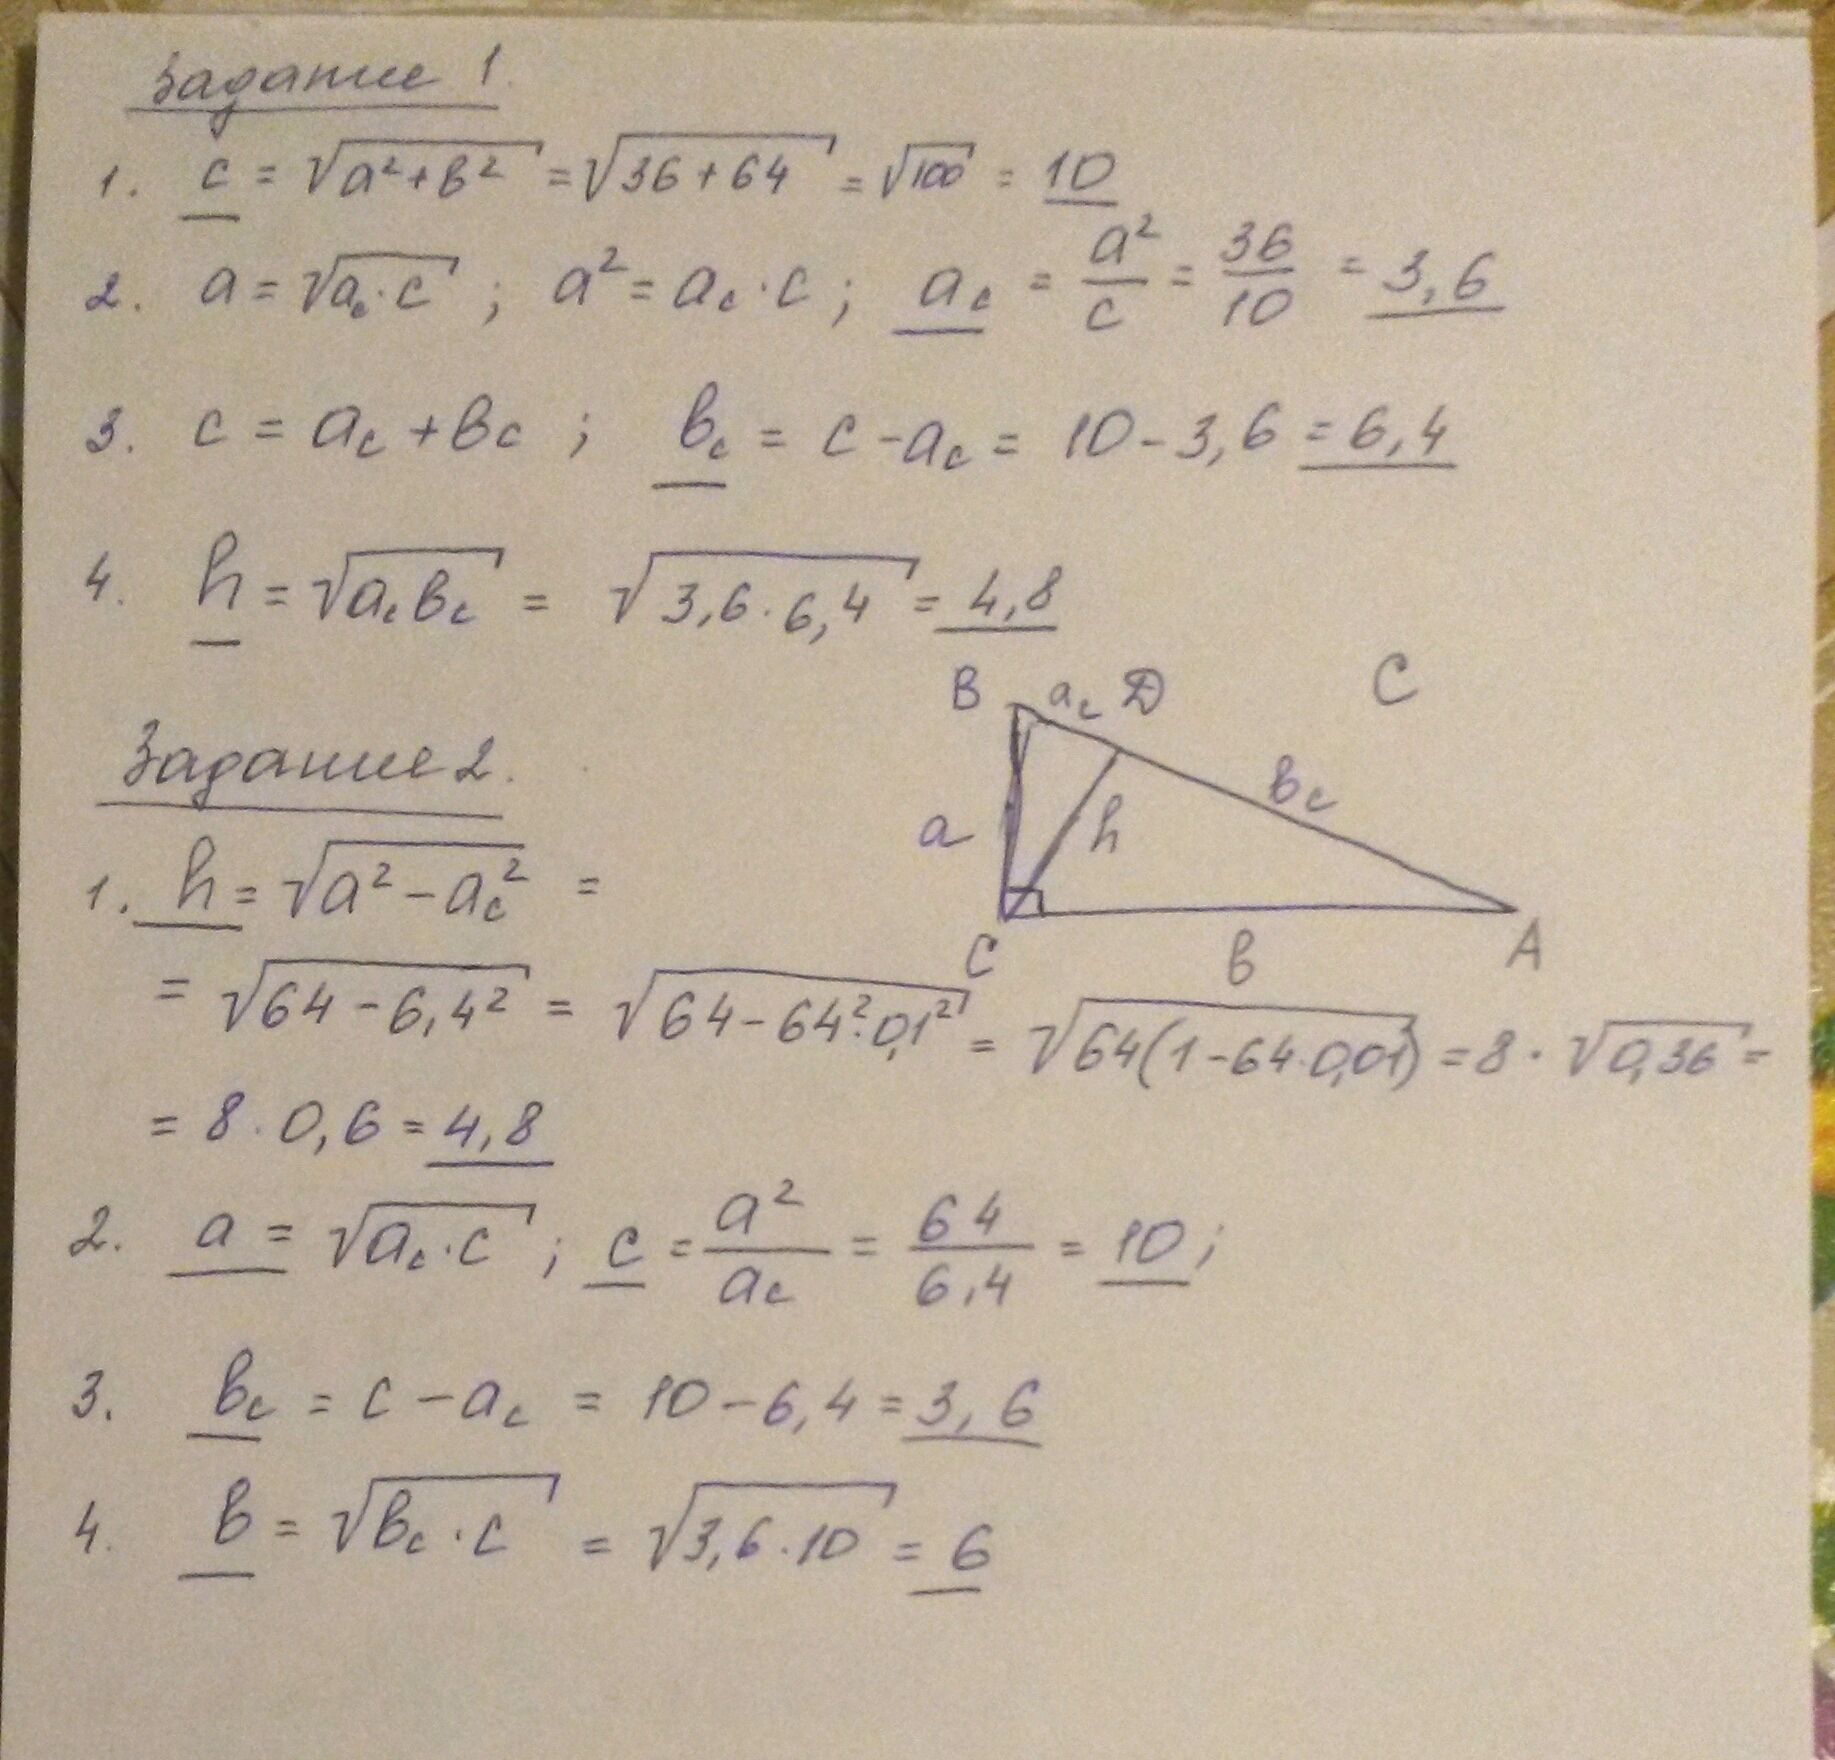 Задание 1.
1. c = √a²+b² = √36+64 = √100 = 10
2. a = √a_c·c ; a² = a_c·c ; a_c = a²/c = 36/10 = 3,6
3. c = a_c + b_c ; b_c = c - a_c = 10 - 3,6 = 6,4
4. h = √a_c b_c = √3,6·6,4 = 4,8
B a_c D C
Задание 2.
b_c
a h
1. h = √a² - a_c² =
C b A
= √64 - 6,4² = √64 - 64²·0,1² = √64(1 - 64·0,01) = 8·√0,36 =
= 8·0,6 = 4,8
2. a = √a_c·c ; c = a²/a_c = 64/6,4 = 10 ;
3. b_c = c - a_c = 10 - 6,4 = 3,6
4. b = √b_c·c = √3,6·10 = 6